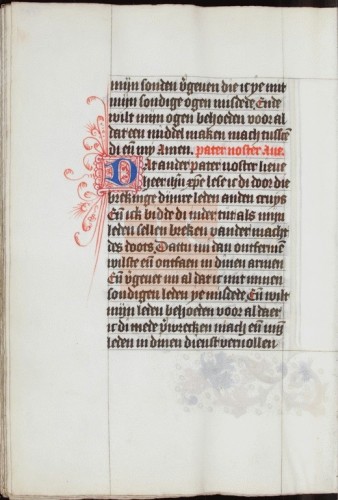 mijn sonden v͛geuen die ic ye mit
mijn sondige ogen misdede. Ende
wilt mijn ogen behoeden voor al
dat een middel maken mach tusschē
di eñ my Amen. Pater noster Aue.
Dat ander pater noster lieue
heer ih̄u xp̄e lese ic di door die
brekinge dinre leden anden cruys
Eñ ic bidde di inder tut als mijn
leden sellen breken vander macht
des doots. Dattu mi dan ontfermē
wilste eñ ontfaen in dinen armen
Eñ v͛geuet mi al dat ic mit minen
sondigen leden ye misdede. Eñ wilt
mijn leden behoeden voor al daer
ic di mede v͛wecken mach eñ mijn
leden in dinen dienst veruollen